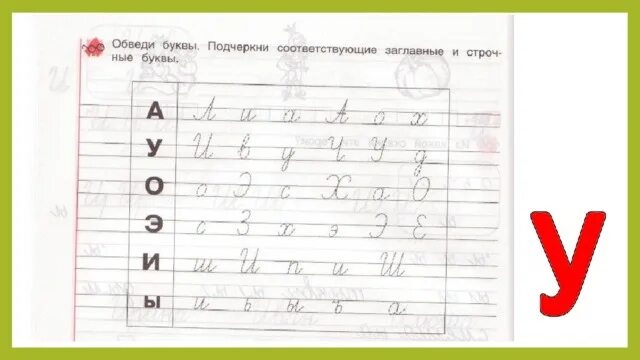 Обведи буквы. Подчеркни соответствующие заглавные и строч-
ные буквы.
А Л и а А о х
У И в у Ч У д
О о Э с Х а О
Э с З х э Э Є
И ш И п и Ш
ы и ь ы ъ а
у